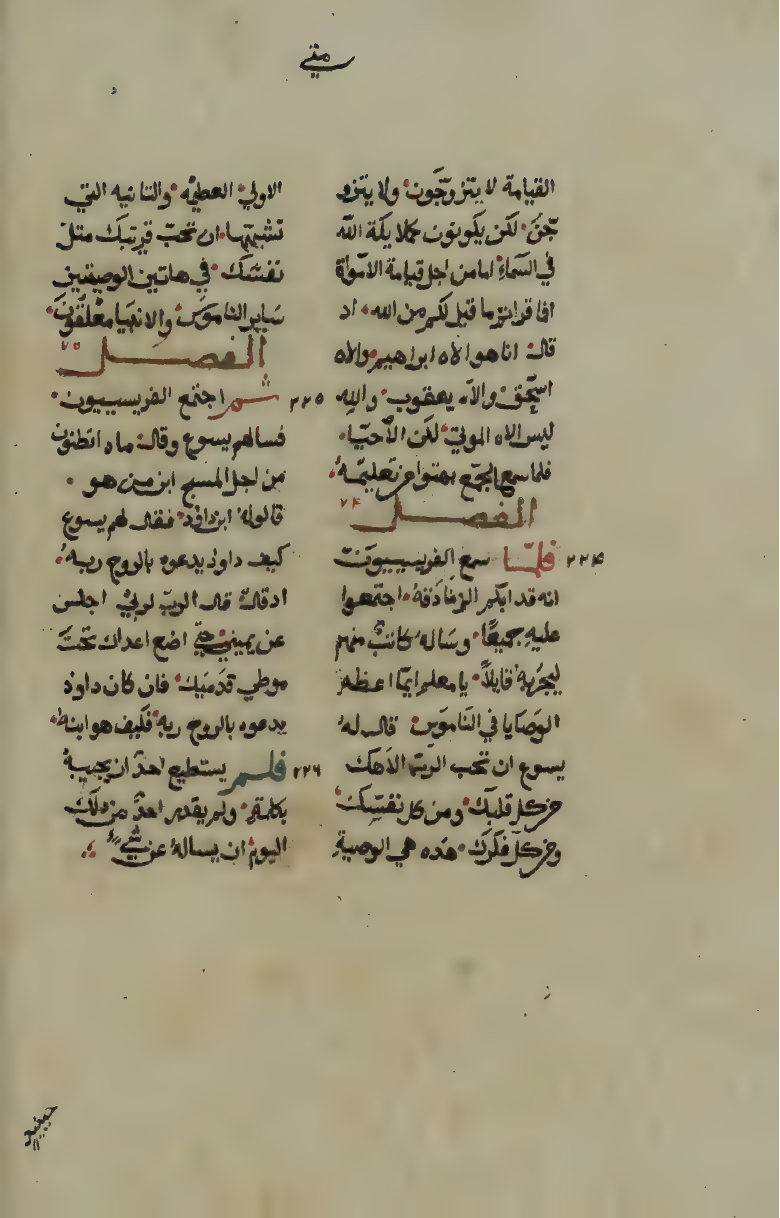 متي
القيامة لا يتزوجون ولا يتزو
جن لكن يكونون كملايكة الله
في السماء اما من اجل قيامة الاموات
افما قراتم ما قيل لكم من الله اد
قال انا هو الاه ابراهيم والاه
اسحق والاه يعقوب والله
ليس الاه الموتي لكن الاحيا
فلما سمع الجمع بهتوا من تعليمه
الفصل ٧٤
٢٢٤ فلما سمع الفريسيون
انه قد ابكم الزنادقه اجتمعوا
عليه جميعا وساله كاتب منهم
ليجربه قايلا يا معلم ايما اعظم
الوصايا في الناموس قال له
يسوع ان تحب الرب الاهك
من كل قلبك ومن كل نفسك
ومن كل فكرك هده هي الوصية
الاولي العظيمه والتانيه التي
تشبهها ان تحب قريبك متل
نفسك في هاتين الوصيتين
ساير الناموس والانبيا معلقون
الفصل ٧٥
٢٢٥ ثم اجتمع الفريسيون
فسالهم يسوع وقال مادا تظنون
من اجل المسيح ابن من هو
قالوله ابن داود فقال لهم يسوع
كيف داود يدعوه بالروح ربه
اد قال قال الرب لربي اجلس
عن يميني حتي اضع اعداك تحت
موطي قدميك فان كان داود
يدعوه بالروح ربه فكيف هو ابنه
٢٢٦ فلم يستطيع احد ان يجيبه
بكلمة ولم يقدر احد من دلك
اليوم ان يساله عن شي